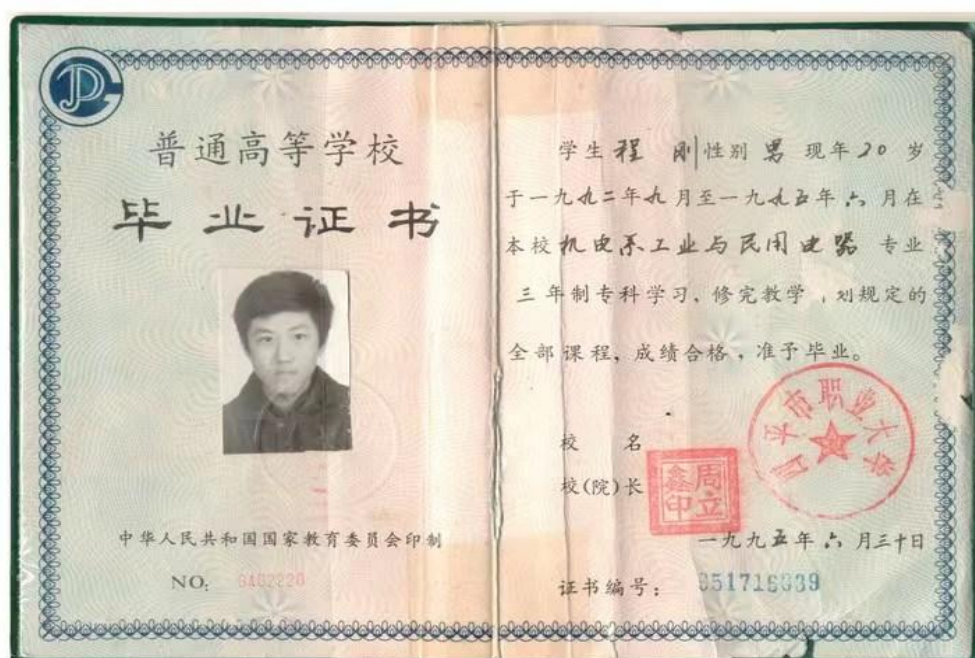 普通高等学校
毕业证书
中华人民共和国国家教育委员会印制
NO: 0402220
学生程 刚性别男现年20岁
于一九九二年九月至一九九五年六月在
本校机电系工业与民用电器 专业
三年制专科学习，修完教学 划规定的
全部课程，成绩合格，准予毕业。
校 名
四平市职业大学
校(院)长
周立鑫印
一九九五年六月三十日
证书编号：